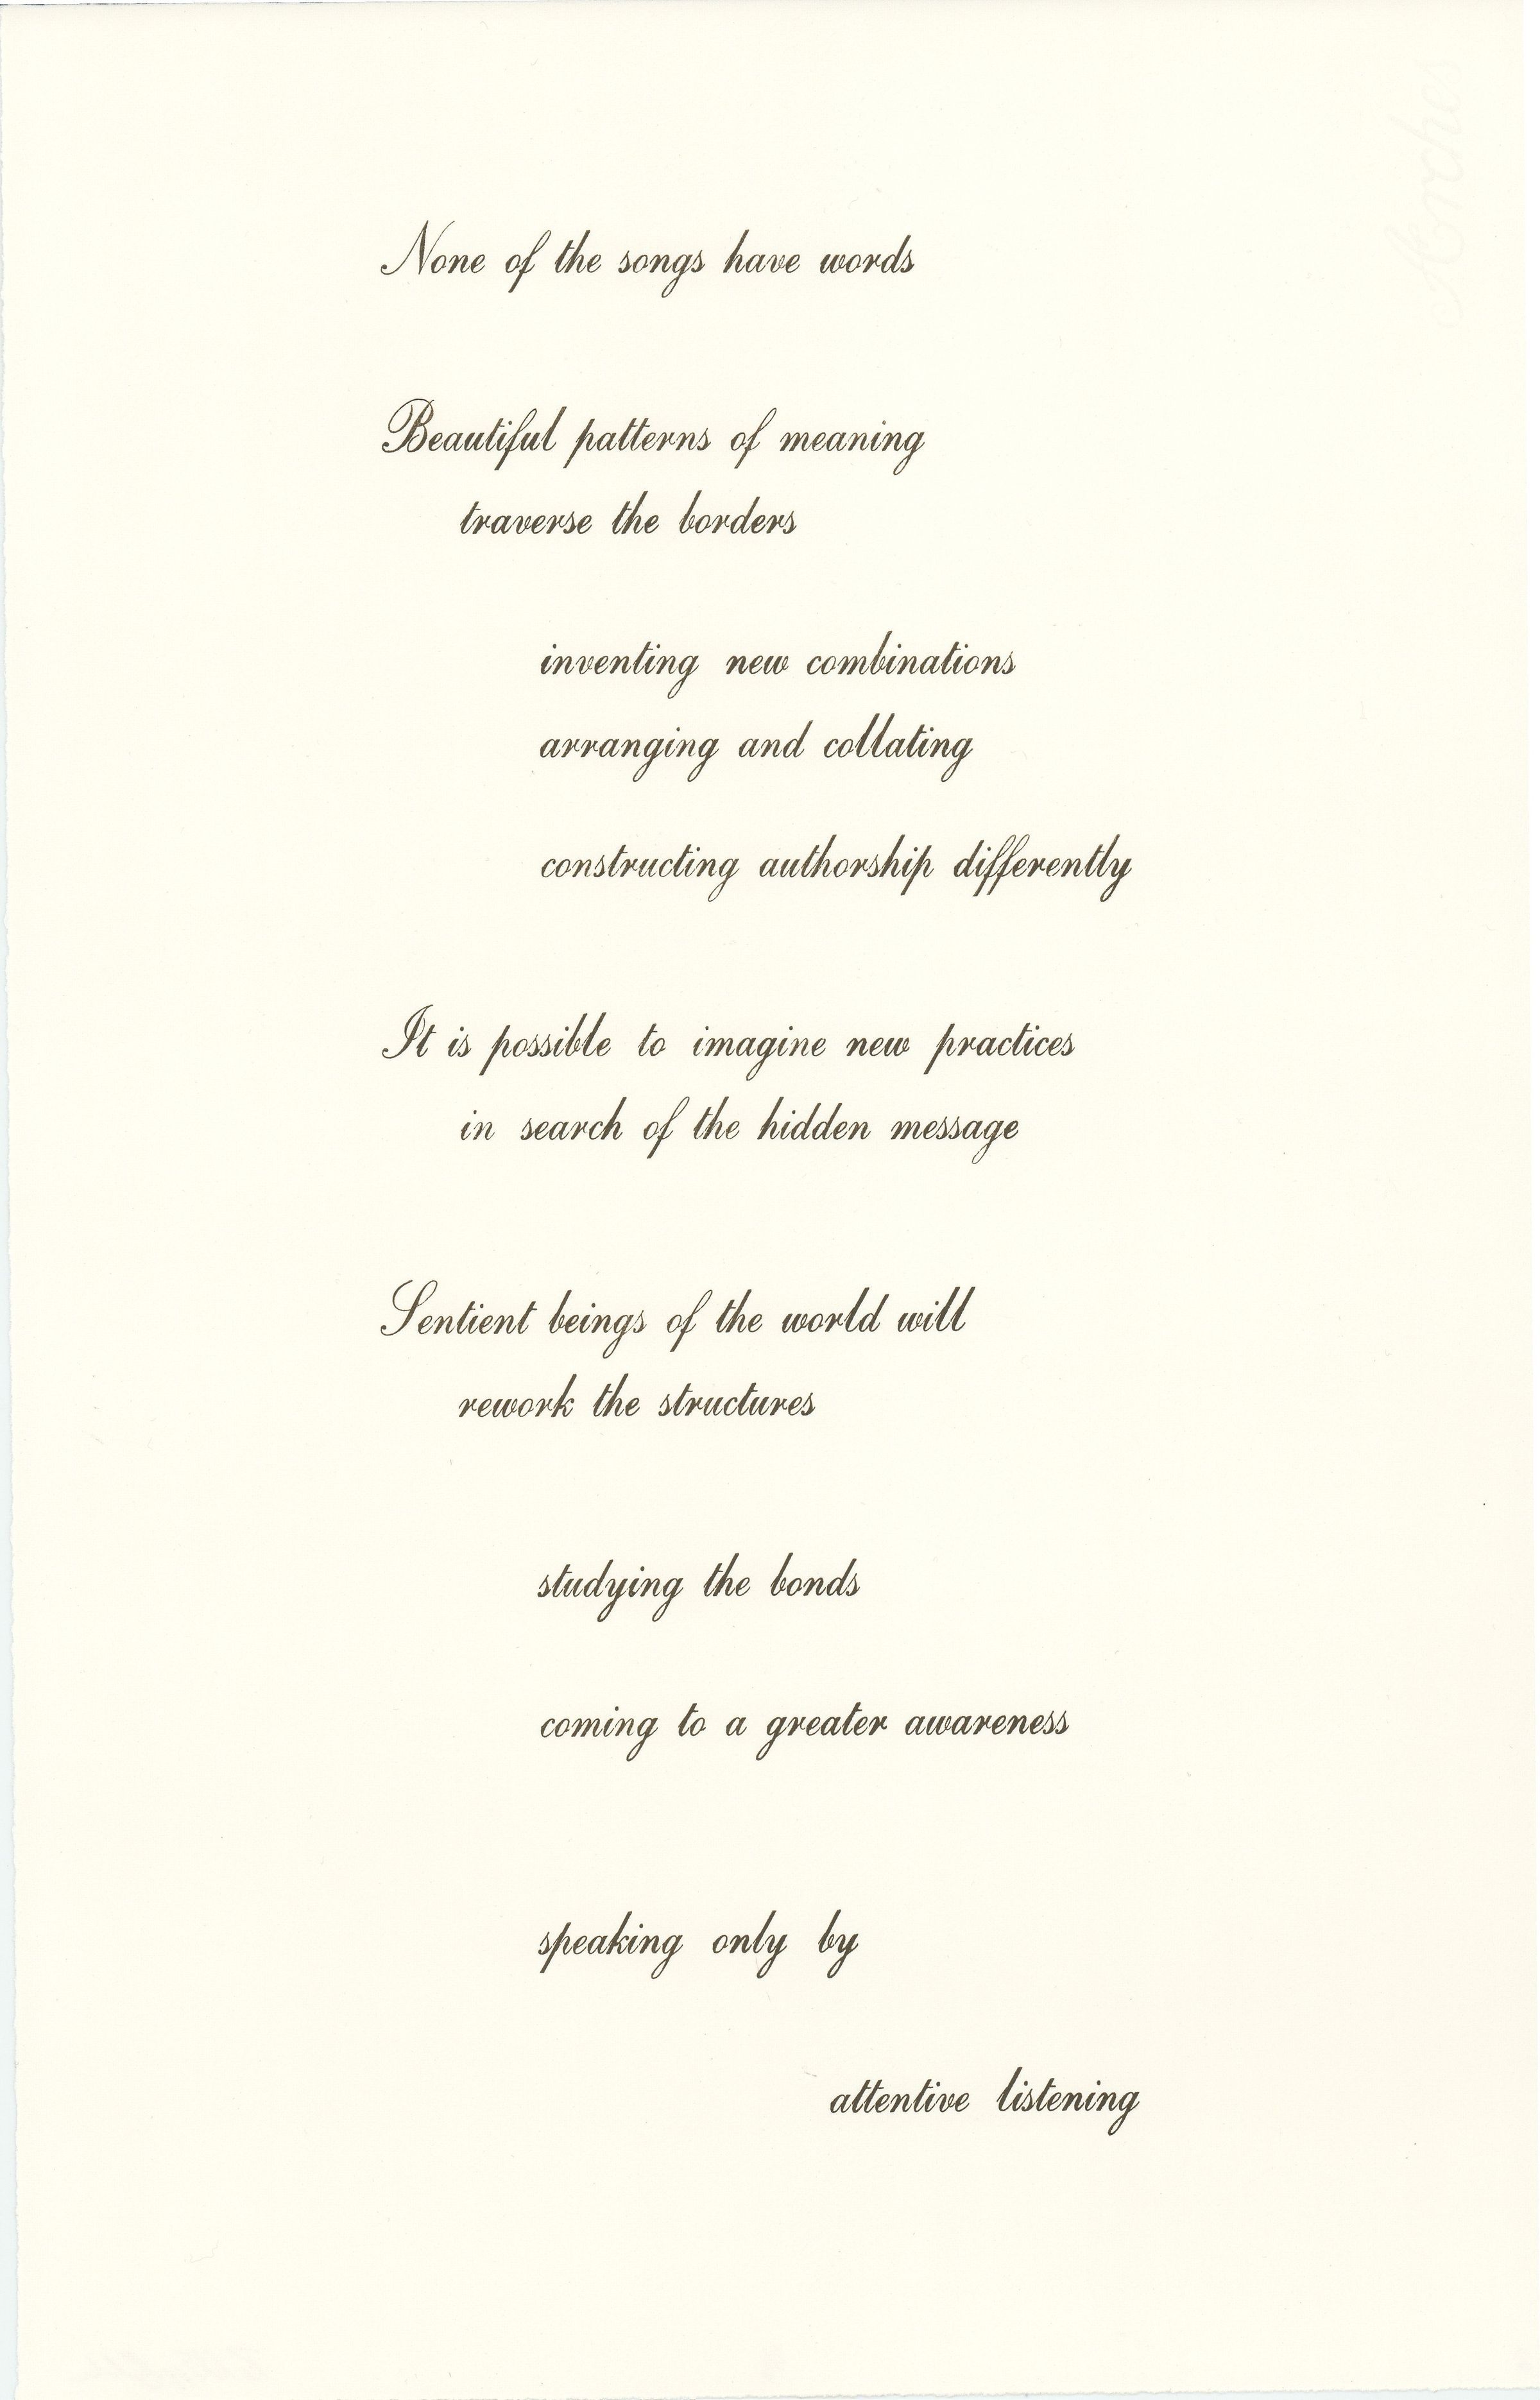 None of the songs have words
Beautiful patterns of meaning
traverse the borders
inventing new combinations
arranging and collating
constructing authorship differently
It is possible to imagine new practices
in search of the hidden message
Sentient beings of the world will
rework the structures
studying the bonds
coming to a greater awareness
speaking only by
attentive listening